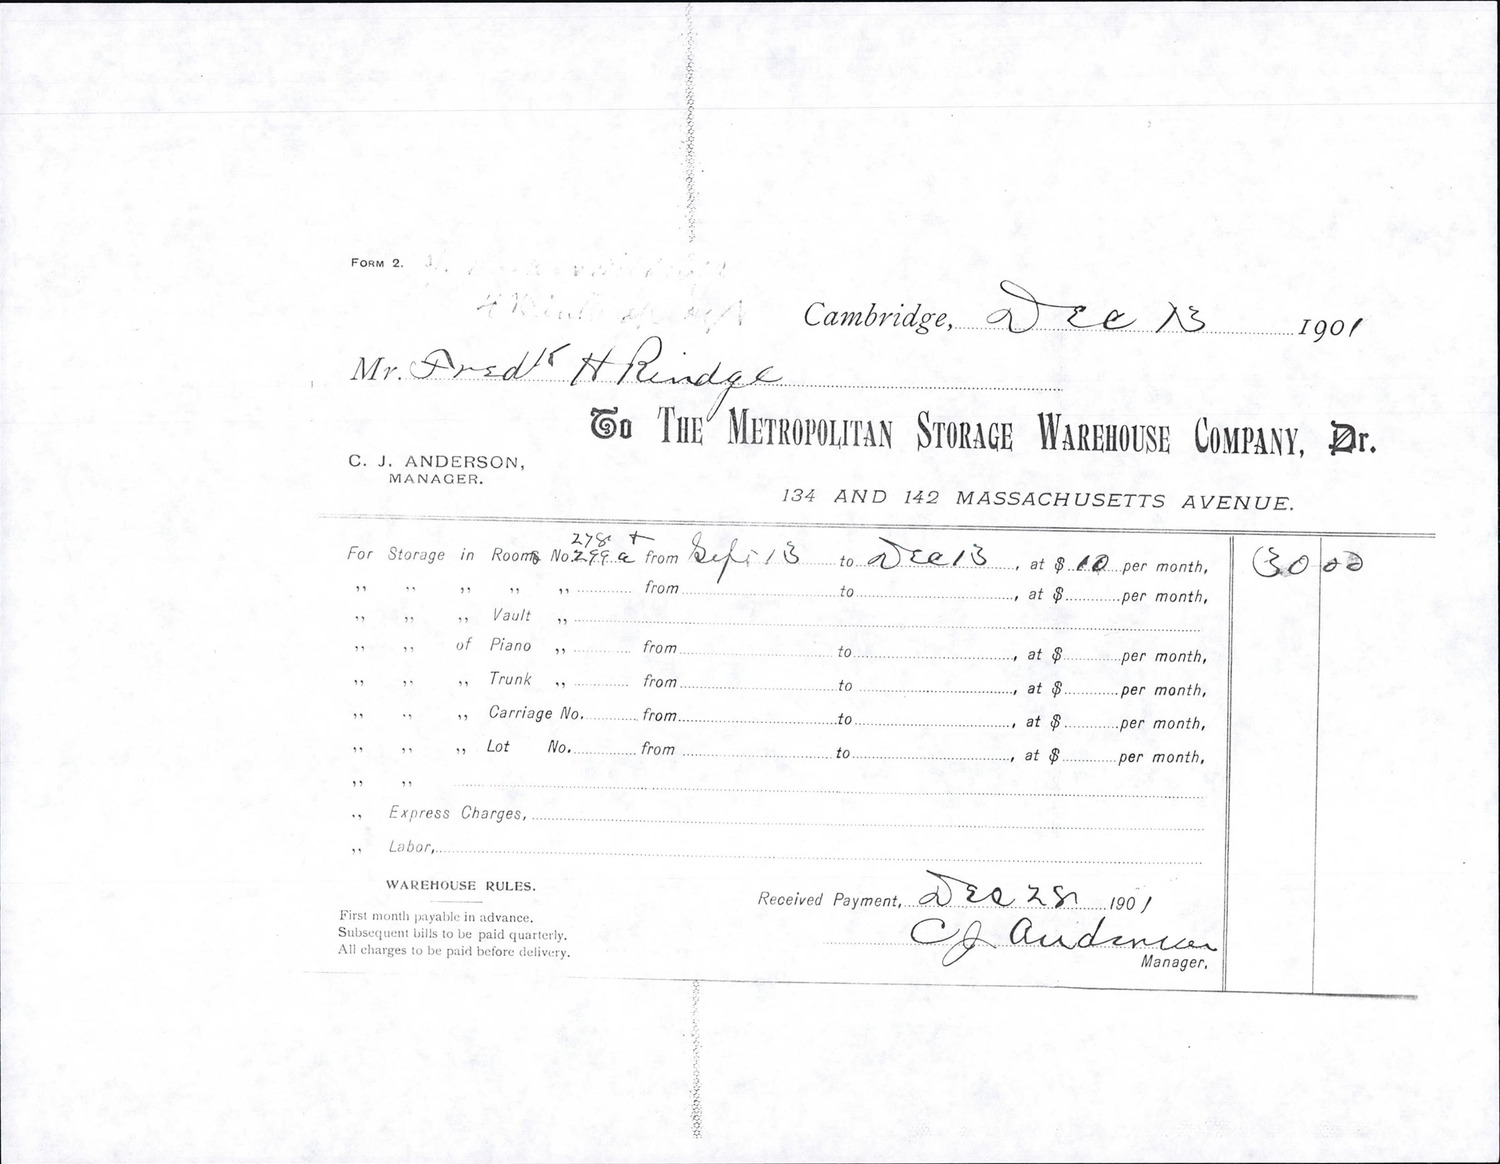 FORM 2.
Cambridge, Dec 13 1901
Mr. Fredk H Rindge
To THE METROPOLITAN STORAGE WAREHOUSE COMPANY, Dr.
C. J. ANDERSON,
MANAGER.
134 AND 142 MASSACHUSETTS AVENUE.
278 +
For Storage in Rooms No. 299 a from Sept 13 to Dec 13, at $ 10 per month, 30 00
,, ,, ,, ,, ,, from to , at $ per month,
,, ,, ,, Vault ,,
,, ,, of Piano ,, from to , at $ per month,
,, ,, ,, Trunk ,, from to , at $ per month,
,, ,, ,, Carriage No. from to , at $ per month,
,, ,, ,, Lot No. from to , at $ per month,
,, ,,
,, Express Charges,
,, Labor,
WAREHOUSE RULES.
First month payable in advance.
Subsequent bills to be paid quarterly.
All charges to be paid before delivery.
Received Payment, Dec 28 1901
C J Anderson
Manager.